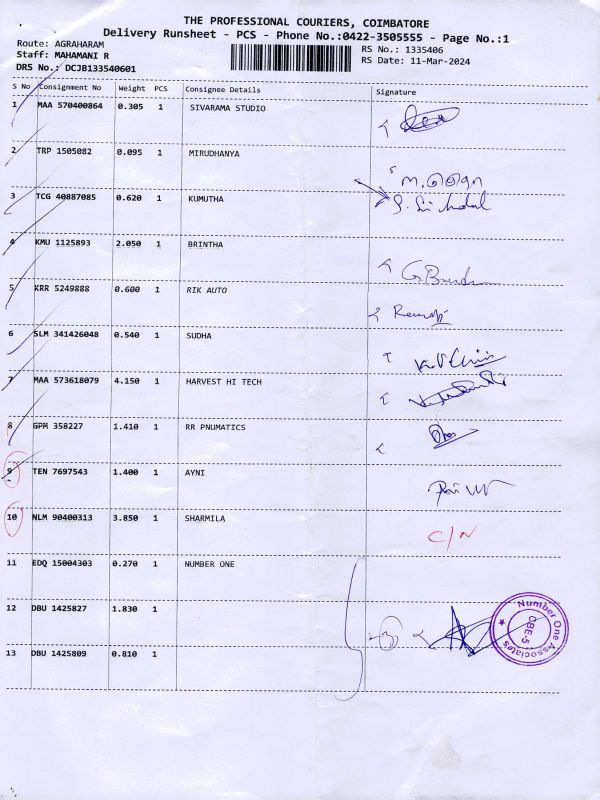 THE PROFESSIONAL COURIERS, COIMBATORE
Delivery Runsheet - PCS - Phone No.:0422-3505555 - Page No.:1
Route: AGRAHARAM
RS No.: 1335406
Staff: MAHAMANI R
RS Date: 11-Mar-2024
DRS No.: DCJB133540601
S No Consignment No Weight PCS Consignee Details Signature
1 MAA 570400864 0.305 1 SIVARAMA STUDIO
2 TRP 1505082 0.095 1 MIRUDHANYA
3 TCG 40887085 0.620 1 KUMUTHA
4 KMU 1125893 2.050 1 BRINTHA
5 KRR 5249888 0.600 1 RIK AUTO
6 SLM 341426048 0.540 1 SUDHA
7 MAA 573618079 4.150 1 HARVEST HI TECH
8 GPM 358227 1.410 1 RR PNUMATICS
9 TEN 7697543 1.400 1 AYNI
10 NLM 90400313 3.850 1 SHARMILA C/N
11 EDQ 15004303 0.270 1 NUMBER ONE
12 DBU 1425827 1.830 1 3
13 DBU 1425809 0.810 1
Number One Associates
CBE-5